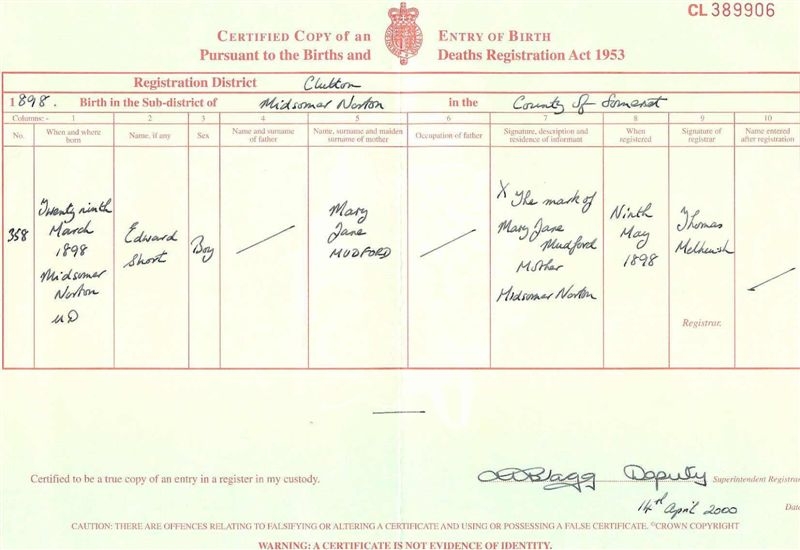 CL 389906
CERTIFIED COPY OF AN ENTRY OF BIRTH
Pursuant to the Births and Deaths Registration Act 1953
Registration District Clutton
1898. Birth in the Sub-district of Midsomer Norton in the County of Somerset
Columns:- 1 2 3 4 5 6 7 8 9 10
No. When and where born Name, if any Sex Name and surname of father Name, surname and maiden surname of mother Occupation of father Signature, description and residence of informant When registered Signature of registrar Name entered after registration
358
Twenty ninth
March
1898
Midsomer
Norton
U D
Edward
Short
Boy
Mary
Jane
MUDFORD
X The mark of
Mary Jane
Mudford
Mother
Midsomer Norton
Ninth
May
1898
Thomas
Melhuish
Registrar.
Certified to be a true copy of an entry in a register in my custody.
Deputy Superintendent Registrar
14th April 2000 Date
CAUTION: THERE ARE OFFENCES RELATING TO FALSIFYING OR ALTERING A CERTIFICATE AND USING OR POSSESSING A FALSE CERTIFICATE. ©CROWN COPYRIGHT
WARNING: A CERTIFICATE IS NOT EVIDENCE OF IDENTITY.